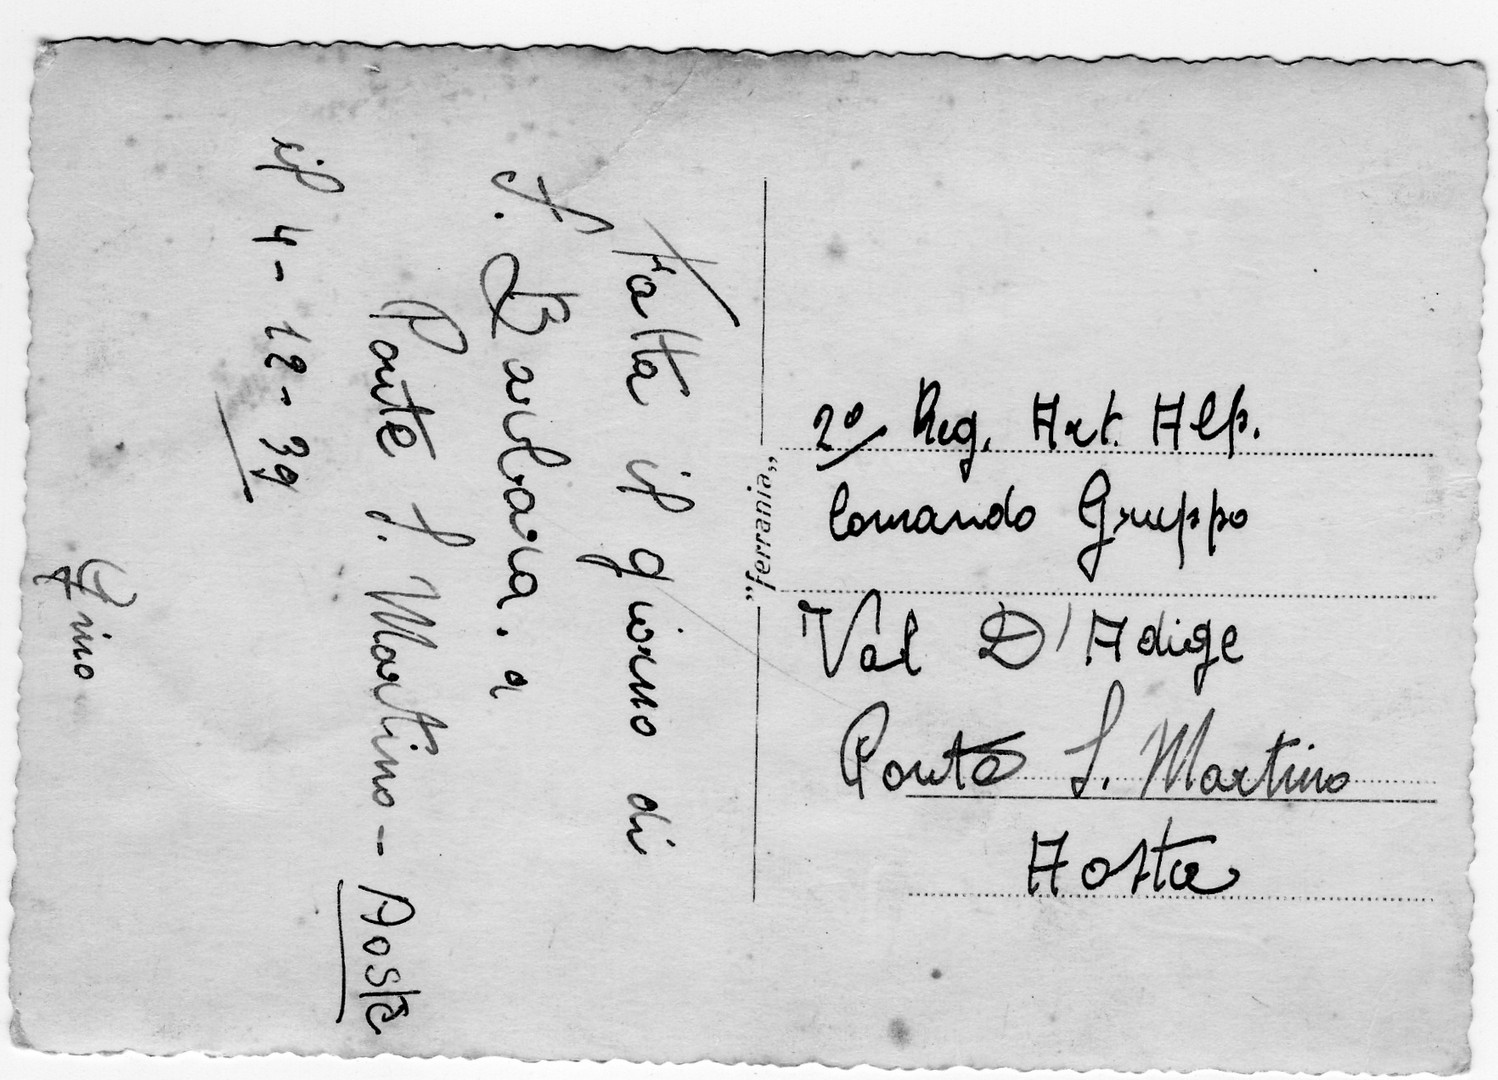 Fatta il giorno di
S. Barbara. a
Ponte S. Martino - Aosta
il 4 - 12 - 39
Gino
"ferrania"
2º Reg. Art. Alp.
Comando Gruppo
Val D'Adige
Ponte S. Martino
Aosta